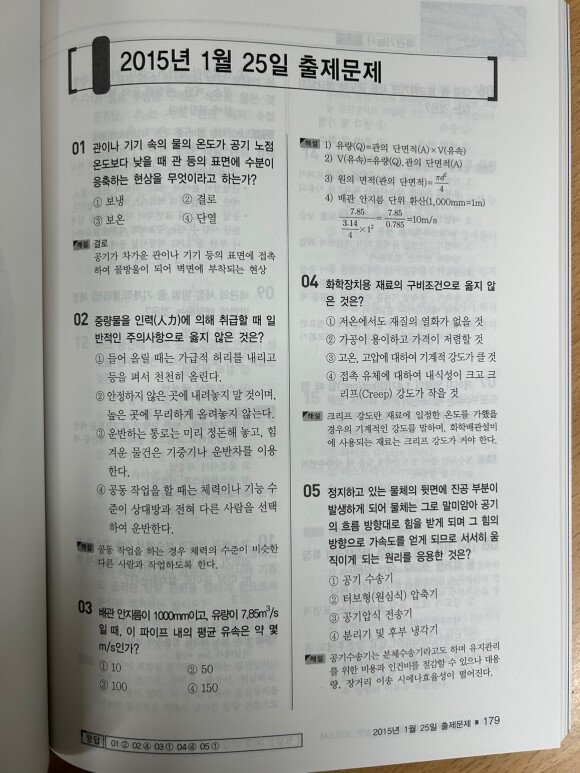 2015년 1월 25일 출제문제
01 관이나 기기 속의 물의 온도가 공기 노점
온도보다 낮을 때 관 등의 표면에 수분이
응축하는 현상을 무엇이라고 하는가?
① 보냉 ② 결로
③ 보온 ④ 단열
해설 결로
공기가 차가운 관이나 기기 등의 표면에 접촉
하여 물방울이 되어 벽면에 부착되는 현상
02 중량물을 인력(人力)에 의해 취급할 때 일
반적인 주의사항으로 옳지 않은 것은?
① 들어 올릴 때는 가급적 허리를 내리고
등을 펴서 천천히 올린다.
② 안정하지 않은 곳에 내려놓지 말 것이며,
높은 곳에 무리하게 올려놓지 않는다.
③ 운반하는 통로는 미리 정돈해 놓고, 힘
겨운 물건은 기중기나 운반차를 이용
한다.
④ 공동 작업을 할 때는 체력이나 기능 수
준이 상대방과 전혀 다른 사람을 선택
하여 운반한다.
해설 공동 작업을 하는 경우 체력의 수준이 비슷한
다른 사람과 작업하도록 한다.
03 배관 안지름이 1000mm이고, 유량이 7.85m³/s
일 때, 이 파이프 내의 평균 유속은 약 몇
m/s인가?
① 10 ② 50
③ 100 ④ 150
해설 1) 유량(Q)=관의 단면적(A)×V(유속)
2) V(유속)=유량(Q).관의 단면적(A)
3) 원의 면적(관의 단면적)=πd²/4
4) 배관 안지름 단위 환산(1,000mm=1m)
7.85/(3.14/4×1²)=7.85/0.785=10m/s
04 화학장치용 재료의 구비조건으로 옳지 않
은 것은?
① 저온에서도 재질의 열화가 없을 것
② 가공이 용이하고 가격이 저렴할 것
③ 고온, 고압에 대하여 기계적 강도가 클 것
④ 접촉 유체에 대하여 내식성이 크고 크
리프(Creep) 강도가 작을 것
해설 크리프 강도란 재료에 일정한 온도를 가했을
경우의 기계적인 강도를 말하며, 화학배관설비
에 사용되는 재료는 크리프 강도가 커야 한다.
05 정지하고 있는 물체의 뒷면에 진공 부분이
발생하게 되어 물체는 그로 말미암아 공기
의 흐름 방향대로 힘을 받게 되며 그 힘의
방향으로 가속도를 얻게 되므로 서서히 움
직이게 되는 원리를 응용한 것은?
① 공기 수송기
② 터보형(원심식) 압축기
③ 공기압식 전송기
④ 분리기 및 후부 냉각기
해설 공기수송기는 분체수송기라고도 하며 유지관리
를 위한 비용과 인건비를 절감할 수 있으나 대용
량, 장거리 이송 시에나효율성이 떨어진다.
정답 01 ② 02 ④ 03 ① 04 ④ 05 ①
2015년 1월 25일 출제문제 ■ 179